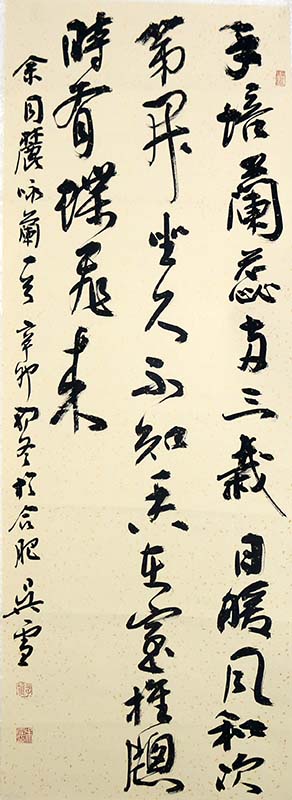 手培蘭蕊兩三栽日暖風和次
第開坐久不知香在室推窗
時有蝶飛來
余同麓咏蘭一首 辛卯初冬於合肥 吳雪